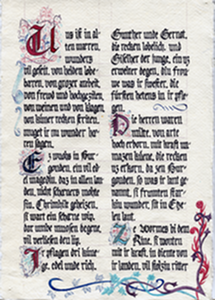 Uns ist in al-
ten mæren,
wunders
vil geseit, von helden lobe-
bæren, von grozer arebeit,
von freud und hochgeziten,
von weinen und von klagen,
von küner recken striten,
muget ir nu wunder hœ-
ren sagen.
Ez wuohs in Bur-
gonden, ein vil ed-
el magedin, daz in allen lan-
den, niht schœners mohte
sin, Chrimhilt geheizen,
si wart ein schœne wip,
dar umbe muosen degene,
vil verliesen den lip.
Ir pflagen drî küne-
ge, edel unde rich,
Gunther unde Gernot,
die recken lobelich, und
Giselher der junge, ein uz
erwelter degen, diu frou-
we was ir swester, die
fürsten hetens in ir pfle-
gen.
Die herren waren
milde, von arte
hoch erborn, mit kraft un-
mazen küene, die recken
uz erkorn, da zen Bur-
gonden, so was ir lant ge-
nannt, si frumten star-
kiu wunder, sît in Etze-
len lant.
Ze Wormes bî dem
Rine, si wonten
mit ir kraft, in diente von
ir landen, vil stolziu ritter